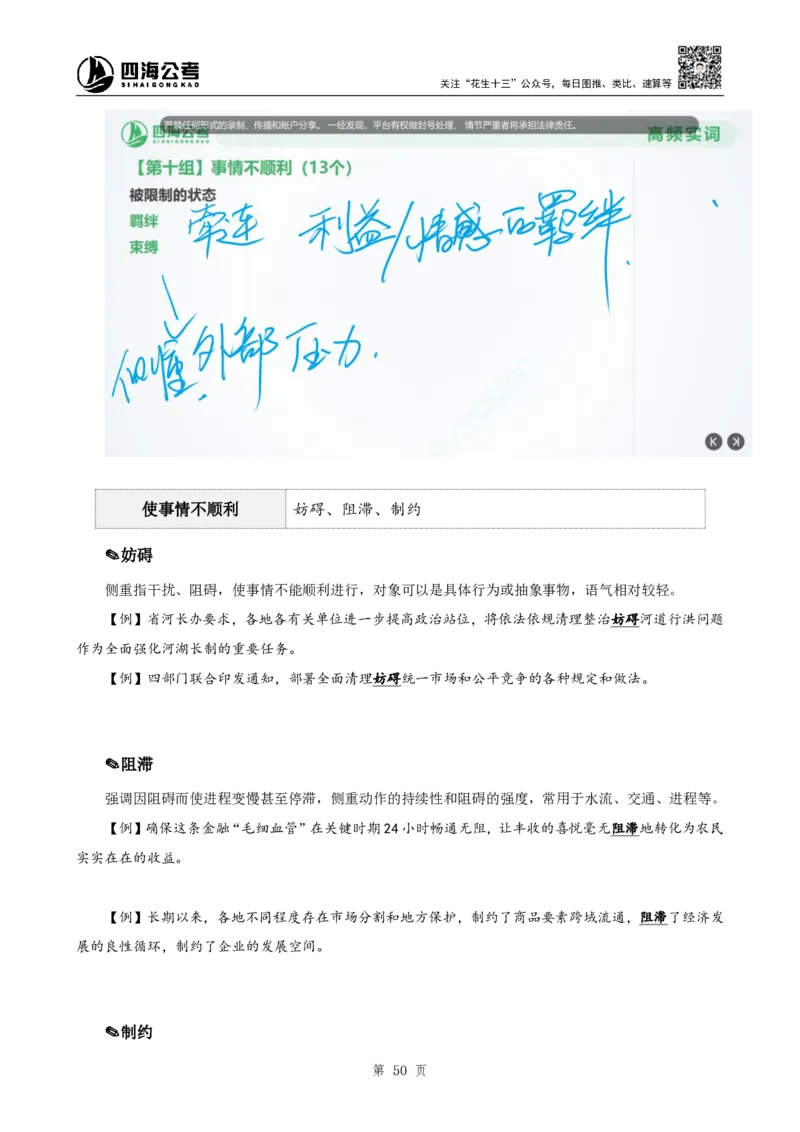 四海公考
SIHAIGONGKAO
关注“花生十三”公众号，每日图推、类比、速算等
严禁任何形式的录制、传播和账户分享。一经发现，平台有权做封号处理，情节严重者将承担法律责任。
四海公考
SIHAIGONGKAO
高频实词
【第十组】事情不顺利（13个）
被限制的状态
羁绊 牵连 利益/情感的羁绊
束缚
侧重外部压力.
使事情不顺利 妨碍、阻滞、制约
✎妨碍
侧重指干扰、阻碍，使事情不能顺利进行，对象可以是具体行为或抽象事物，语气相对较轻。
【例】省河长办要求，各地各有关单位进一步提高政治站位，将依法依规清理整治妨碍河道行洪问题
作为全面强化河湖长制的重要任务。
【例】四部门联合印发通知，部署全面清理妨碍统一市场和公平竞争的各种规定和做法。
✎阻滞
强调因阻碍而使进程变慢甚至停滞，侧重动作的持续性和阻碍的强度，常用于水流、交通、进程等。
【例】确保这条金融“毛细血管”在关键时期24小时畅通无阻，让丰收的喜悦毫无阻滞地转化为农民
实实在在的收益。
【例】长期以来，各地不同程度存在市场分割和地方保护，制约了商品要素跨域流通，阻滞了经济发
展的良性循环，制约了企业的发展空间。
✎制约
第 50 页